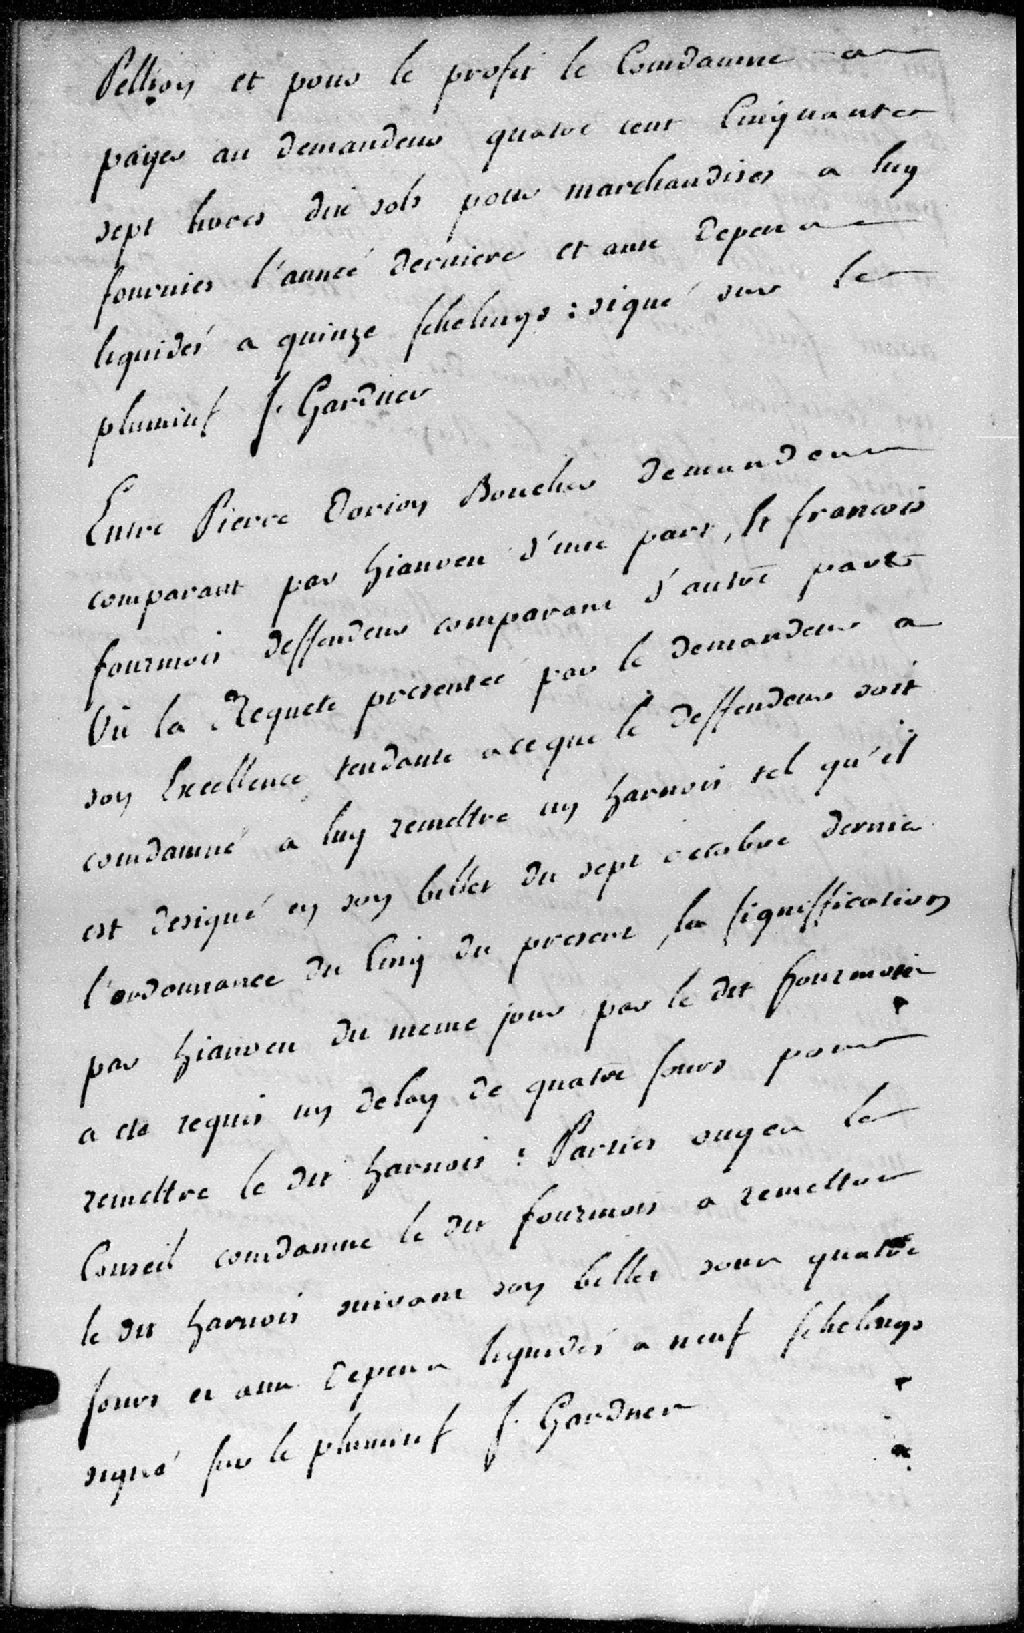 Pellion et pour le profit le Comdamne a
payer au demandeur quatre cent Cinquante
sept livres dix sols pour marchandises a luy
fournies l'anneé derniere et aux depens
liquidés a quinze schelings : signé sur le
plumitif f. Gardner
Entre Pierre Dorion Boucher demandeur
comparant par hianveu d'une part, et francois
fourmois deffendeur comparant d'autre part
Vû la Requete presenteé par le demandeur a
son Excellence, tendante a ce que le deffendeur soit
comdamné a luy remettre un harnois tel qu'il
est designé en son billet du sept octobre dernier
l'ordonnance du Cinq du present, la signiffication
par hianveu du meme jour par le dit fourmois
a eté requis un delay de quatre jours pour
remettre le dit harnois : Parties ouyes le
Conseil comdamne le dit fourmois a remettre
le dit harnois suivant son billet sous quatre
jours et aux depens liquidés a neuf schelings
signé sur le plumitif f. Gardner